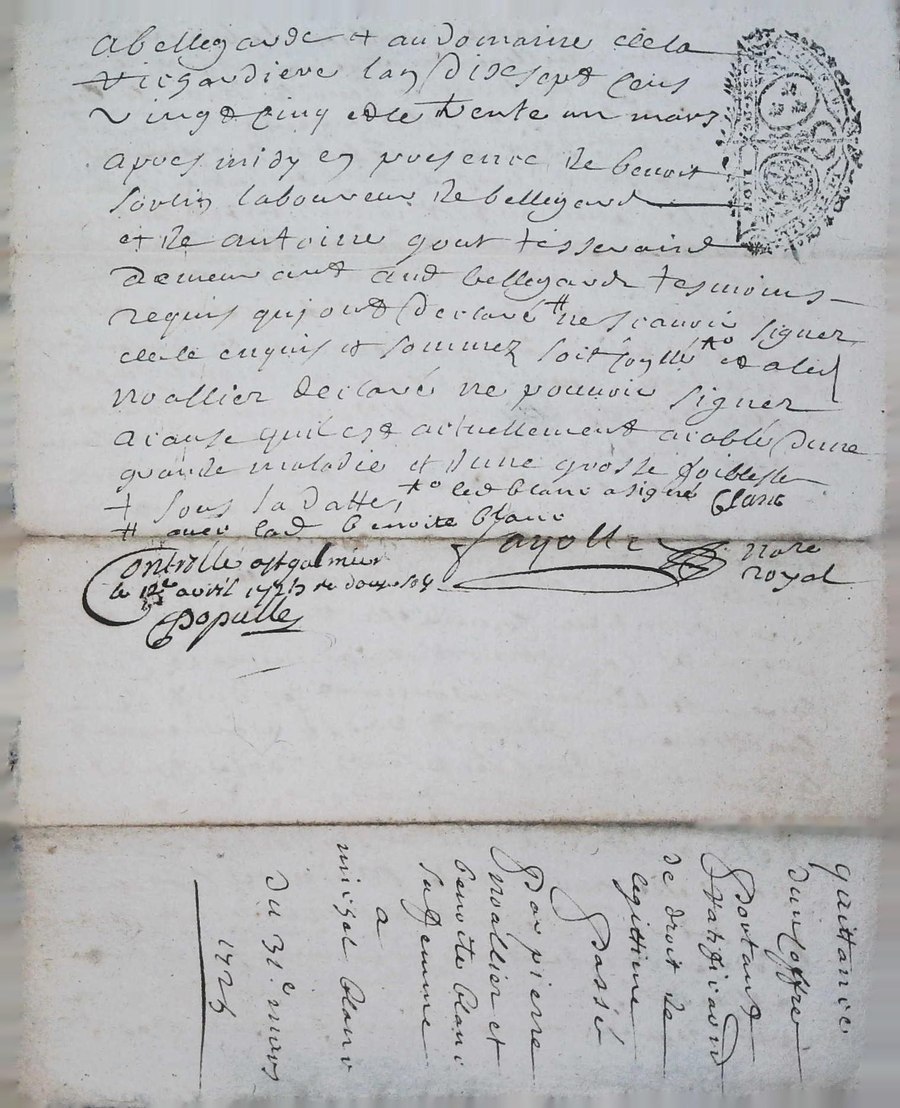 a bellegarde + au domaine de la
Virgandiere lan Dixsept cens
vingt cinq et le trente un mars
apres midy en presence de benoit
Sorlin laboureur de bellegard
et de antoine gout tisserand
demeurant aud bellegarde tesmoins
requis qui ont declaré # ne scavoir signer
de ce enquis et sommez soit ++ et a led
noallier declaré ne pouvoir signer
a cause quil est actuellement acablé dune
grande maladie et dune grosse foiblesse
+ sous la datte, ++ led blanc a signé Blanc
# avec lad benoite blanc
Fayolle nore
royal
Controllé a st galmier
le 12e avril 1725 re douze sols
Populle
quittance
dun coffre
portant
ratification
de droit de
legittime
Passé
Par pierre
noallier et
benoite blanc
sa femme
a
michel blanc
du 31e mars
1725